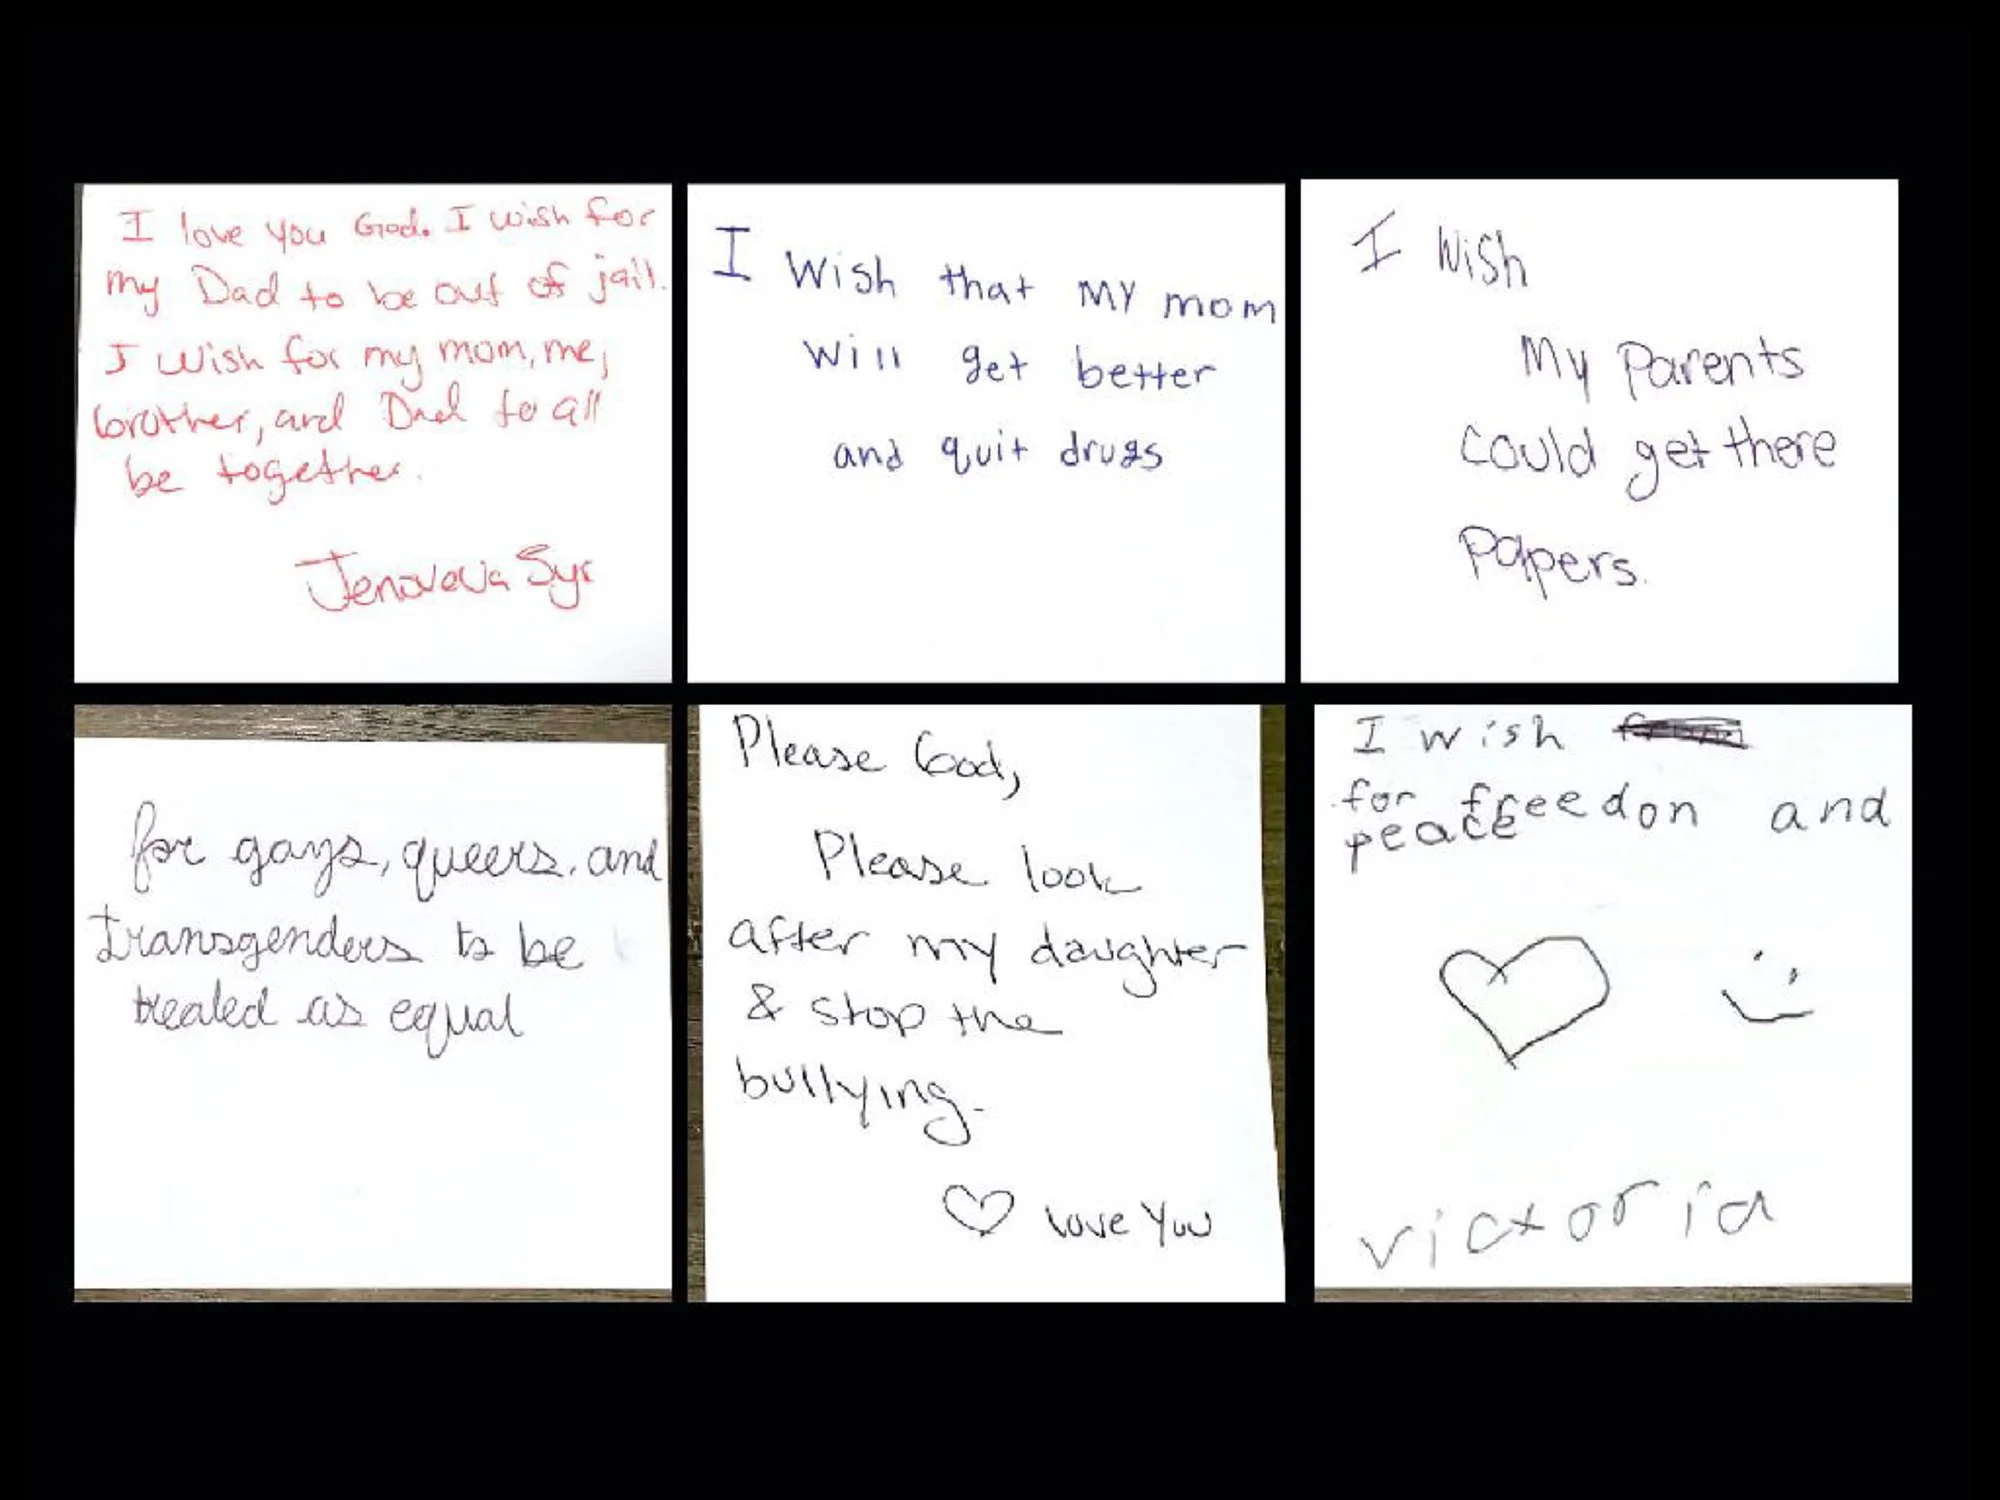 I love you God. I wish for
my Dad to be out of jail.
I wish for my mom, me,
brother, and Dad to all
be together.
Jenoveva Syr
I Wish that MY mom
Will get better
and quit drugs
I Wish
My Parents
Could get there
Papers.
for gays, queers, and
transgenders to be
treated as equal
Please God,
Please look
after my daughter
& stop the
bullying.
love you
I wish
for freedon and
peace
victoria